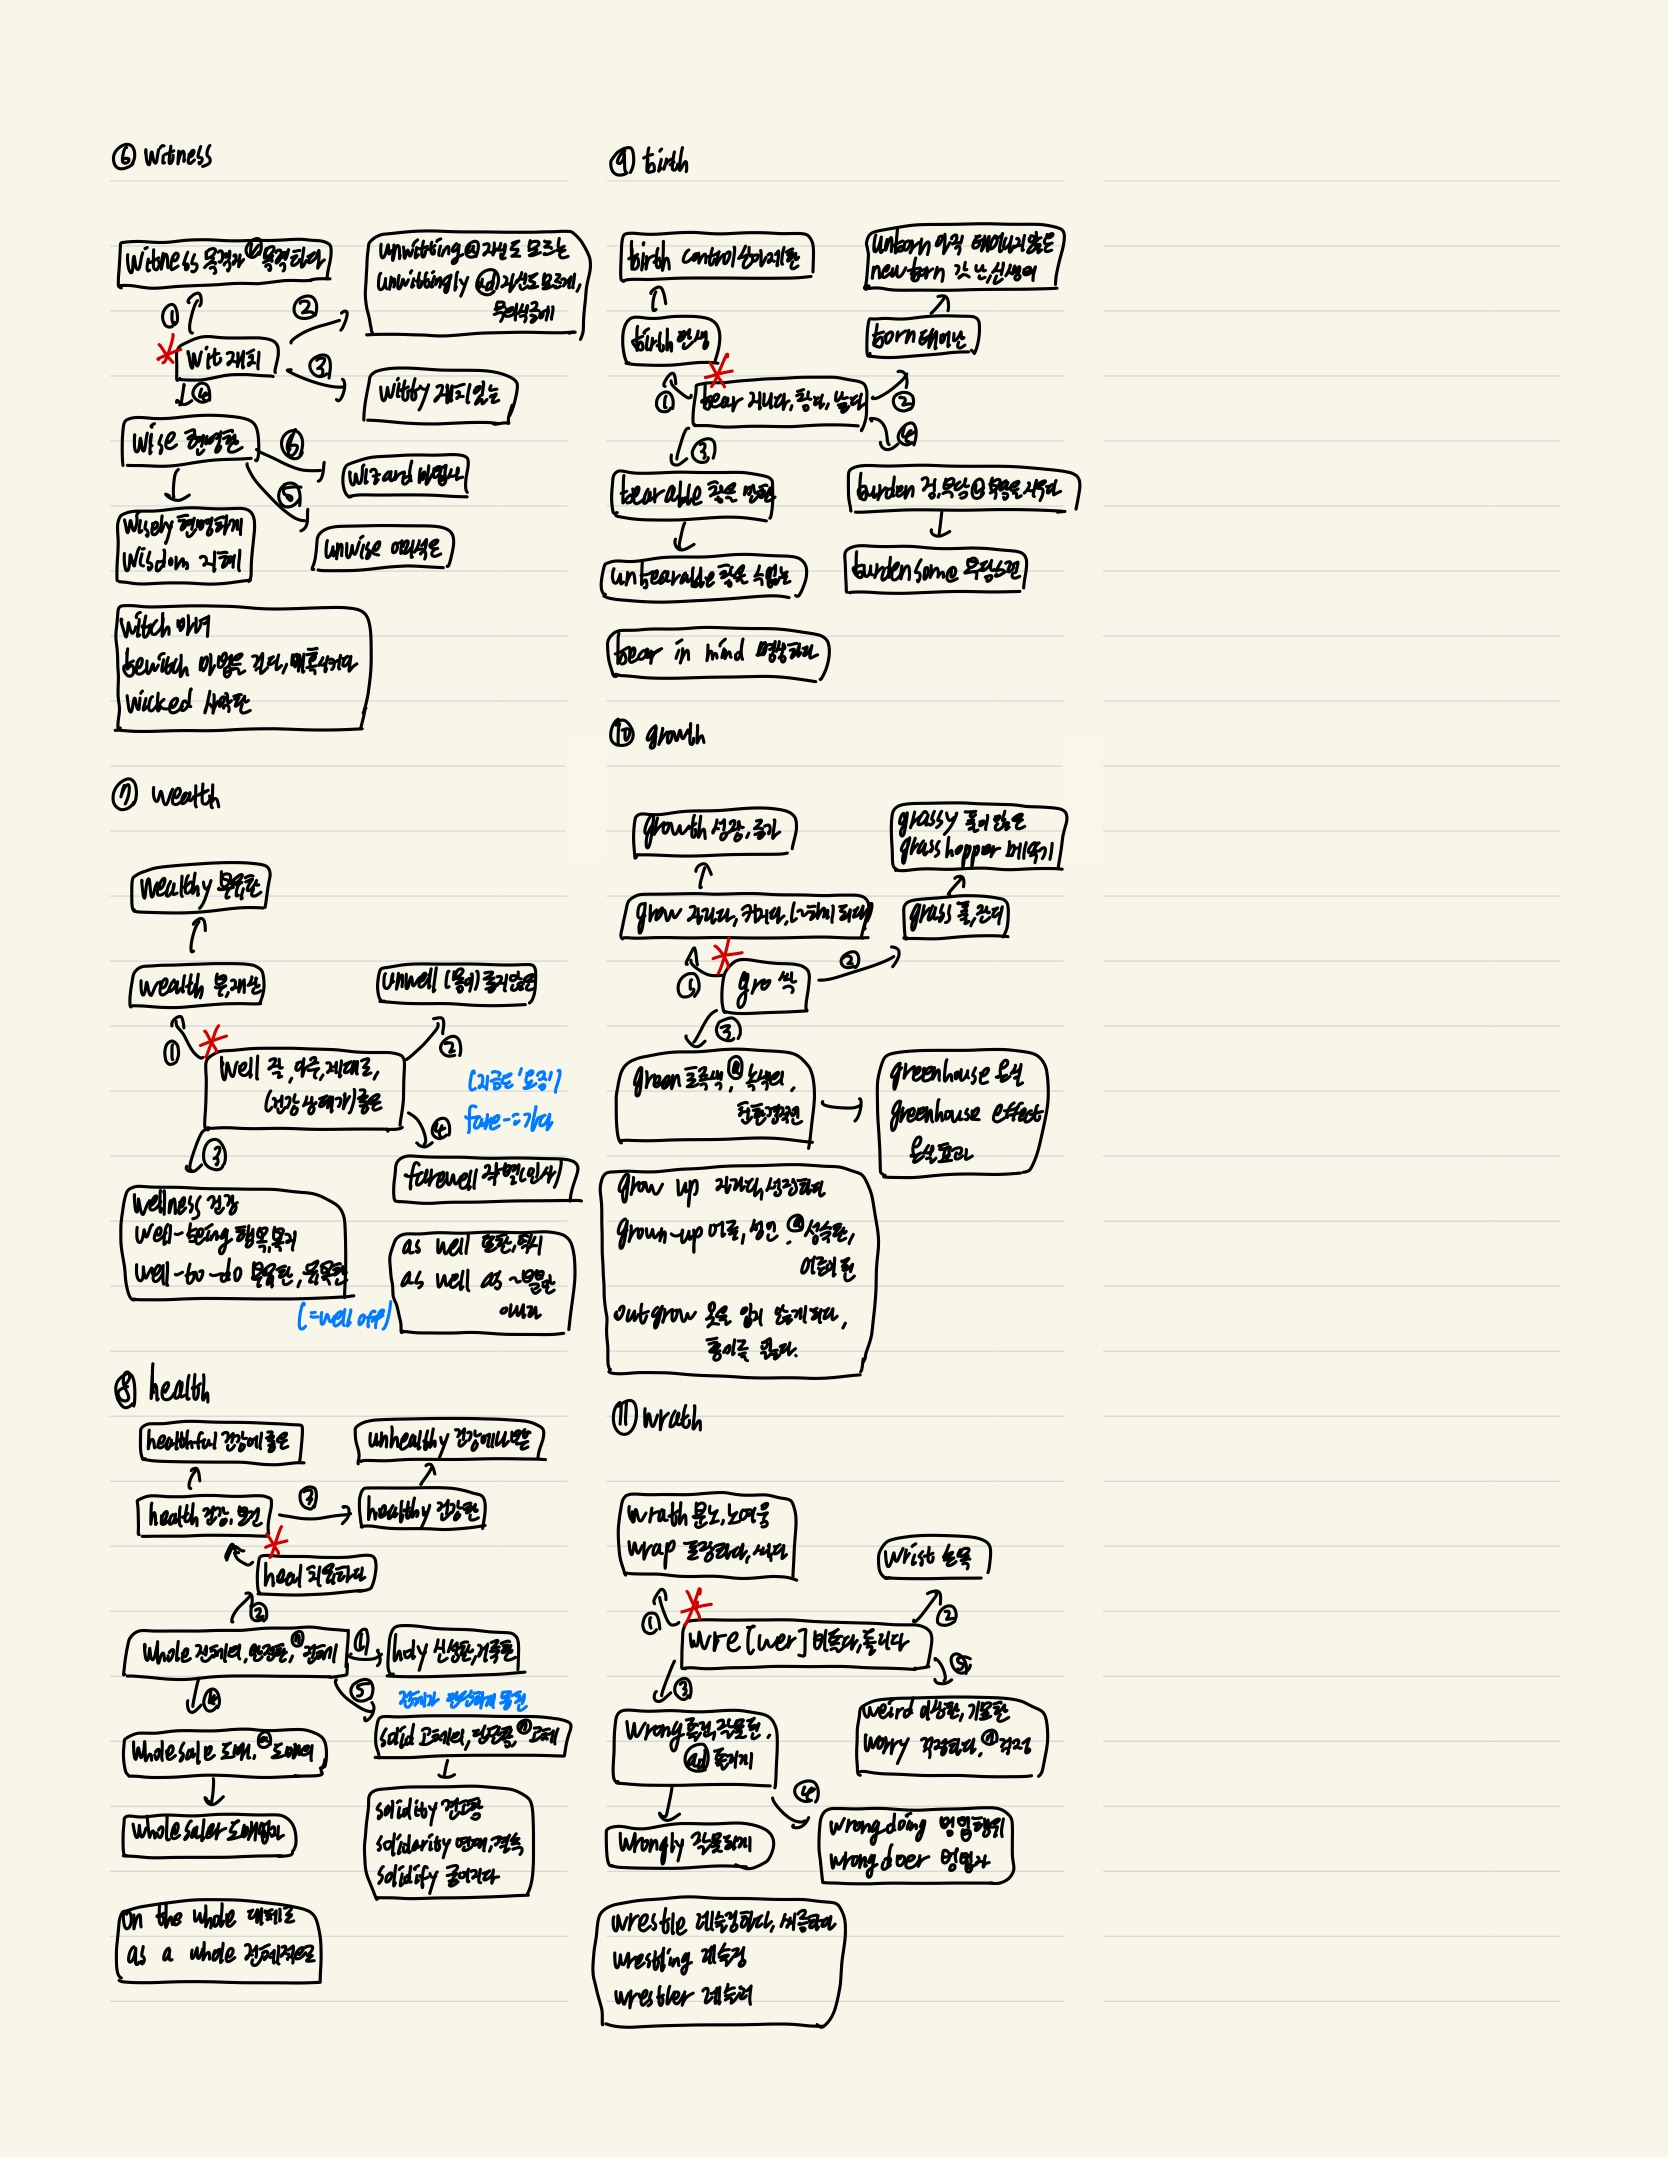 ⑥ witness
witness 목격자 ⓥ목격하다
unwitting ⓐ 자신도 모르는
unwittingly ⓐd 자신도모르게,
무의식중에
①
②
wit 재치
③
witty 재치있는
④
wise 현명한
⑥
wizard 마법사
⑤
wisely 현명하게
wisdom 지혜
unwise 어리석은
witch 마녀
bewitch 마법을 걸다, 매혹시키다
wicked 사악한
⑦ wealth
wealthy 부유한
wealth 부,재산
unwell (몸이) 좋지않은
①
②
well 잘, 아주, 제대로,
(건강 상태가)좋은
fare-=가다
④
③
farewell 작별(인사)
wellness 건강
well-being 행복,복지
well-to-do 부유한, 유복한
(=well off)
as well 또한,역시
as well as ~뿐만
아니라
⑧ health
healthful 건강에좋은
unhealthy 건강에나쁜
health 건강, 보건
③
healthy 건강한
heal 치유하다
②
whole 전체의, 완전한, ⓝ 전체
①
holy 신성한,거룩한
④
⑤
전체가 단단하게 뭉친
wholesale 도매, ⓐ도매의
solid 고체의, 단단한, ⓝ고체
wholesaler 도매업자
solidity 견고함
solidarity 연대,결속
solidify 굳어지다
on the whole 대체로
as a whole 전체적으로
⑨ birth
birth control 산아제한
unborn 아직 태어나지않은
newborn 갓 난,신생의
birth 탄생
born 태어난
①
bear 지니다, 참다, 낳다
②
④
③
bearable 참을 만한
burden 짐,부담 ⓥ부담을지우다
unbearable 참을 수없는
burdensome 부담스런
bear in mind 명심하다
⑩ growth
growth 성장,증가
grassy 풀이 많은
grasshopper 메뚜기
grow 자라다, 커지다, (~하게 되다)
grass 풀,잔디
①
②
gro 싹
③
green 초록색, ⓐ녹색의,
친환경적인
greenhouse 온실
greenhouse effect
온실효과
grow up 자라다,성장하다
grown-up 어른, 성인. ⓐ성숙한,
어른이 된
outgrow 옷을 입지 않게되다,
흥미를 잃다.
⑪ wrath
wrath 분노,노여움
wrap 포장하다,싸다
wrist 손목
①
②
wre [wer] 비틀다, 돌리다
③
⑤
wrong 틀린, 잘못된.
ⓐd 틀리게
weird 이상한, 기묘한
worry 걱정하다, ⓝ걱정
④
wrongly 잘못되게
wrongdoing 범법행위
wrongdoer 범법자
wrestle 레슬링하다, 씨름하다
wrestling 레슬링
wrestler 레슬러